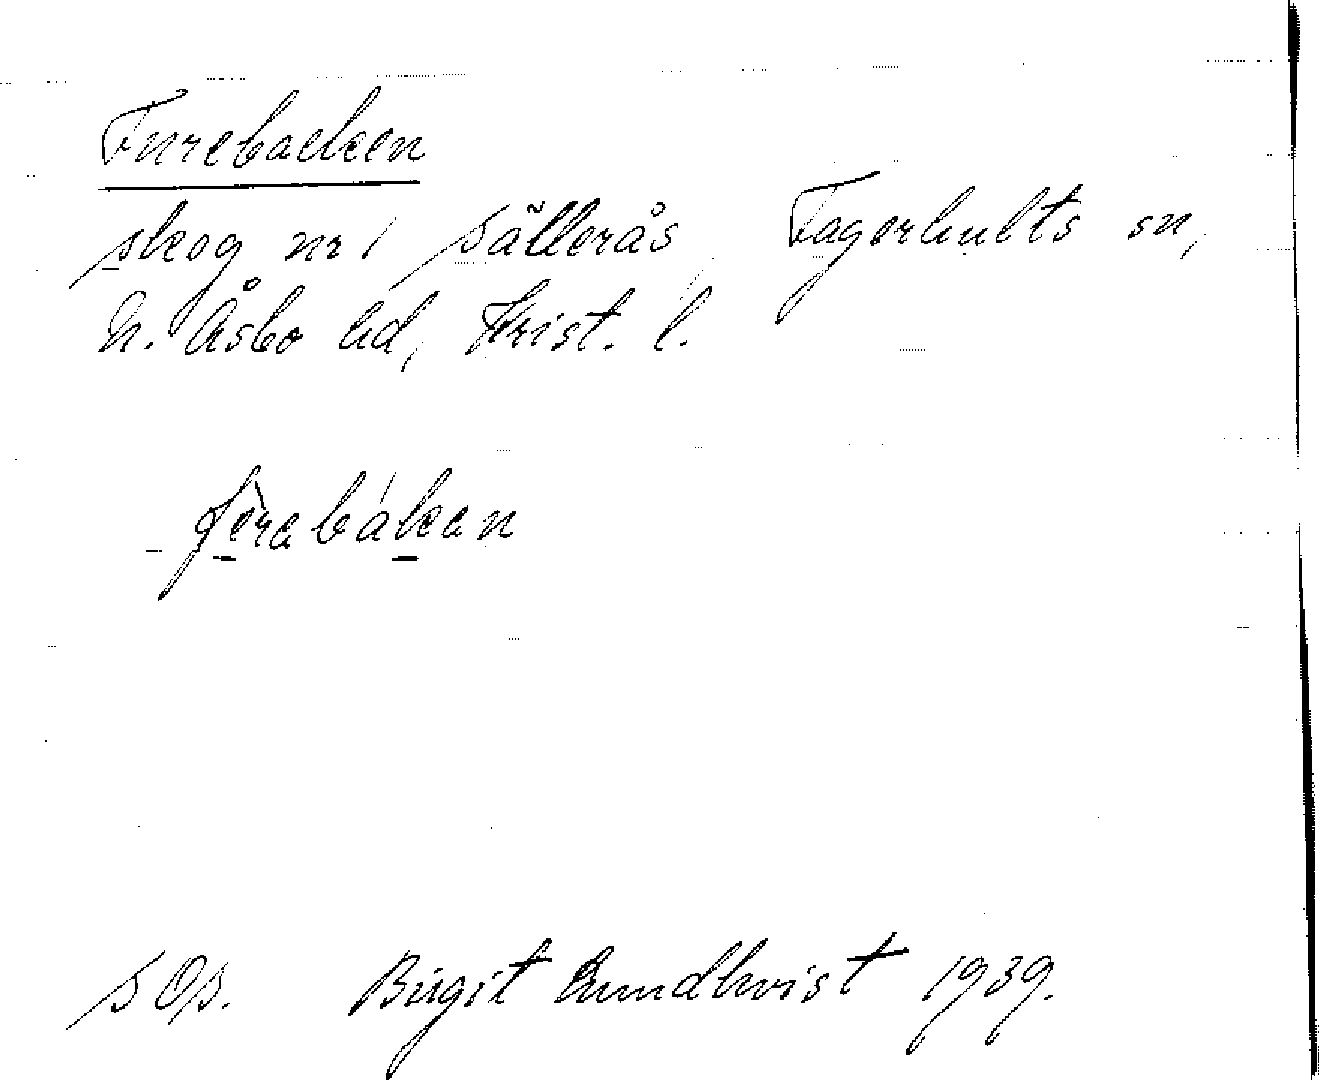 Furebacken
skog nr 1 Sällerås Fagerhults sn,
N. Åsbo hd, Krist. l.
Birgit Lundkvist 1939.